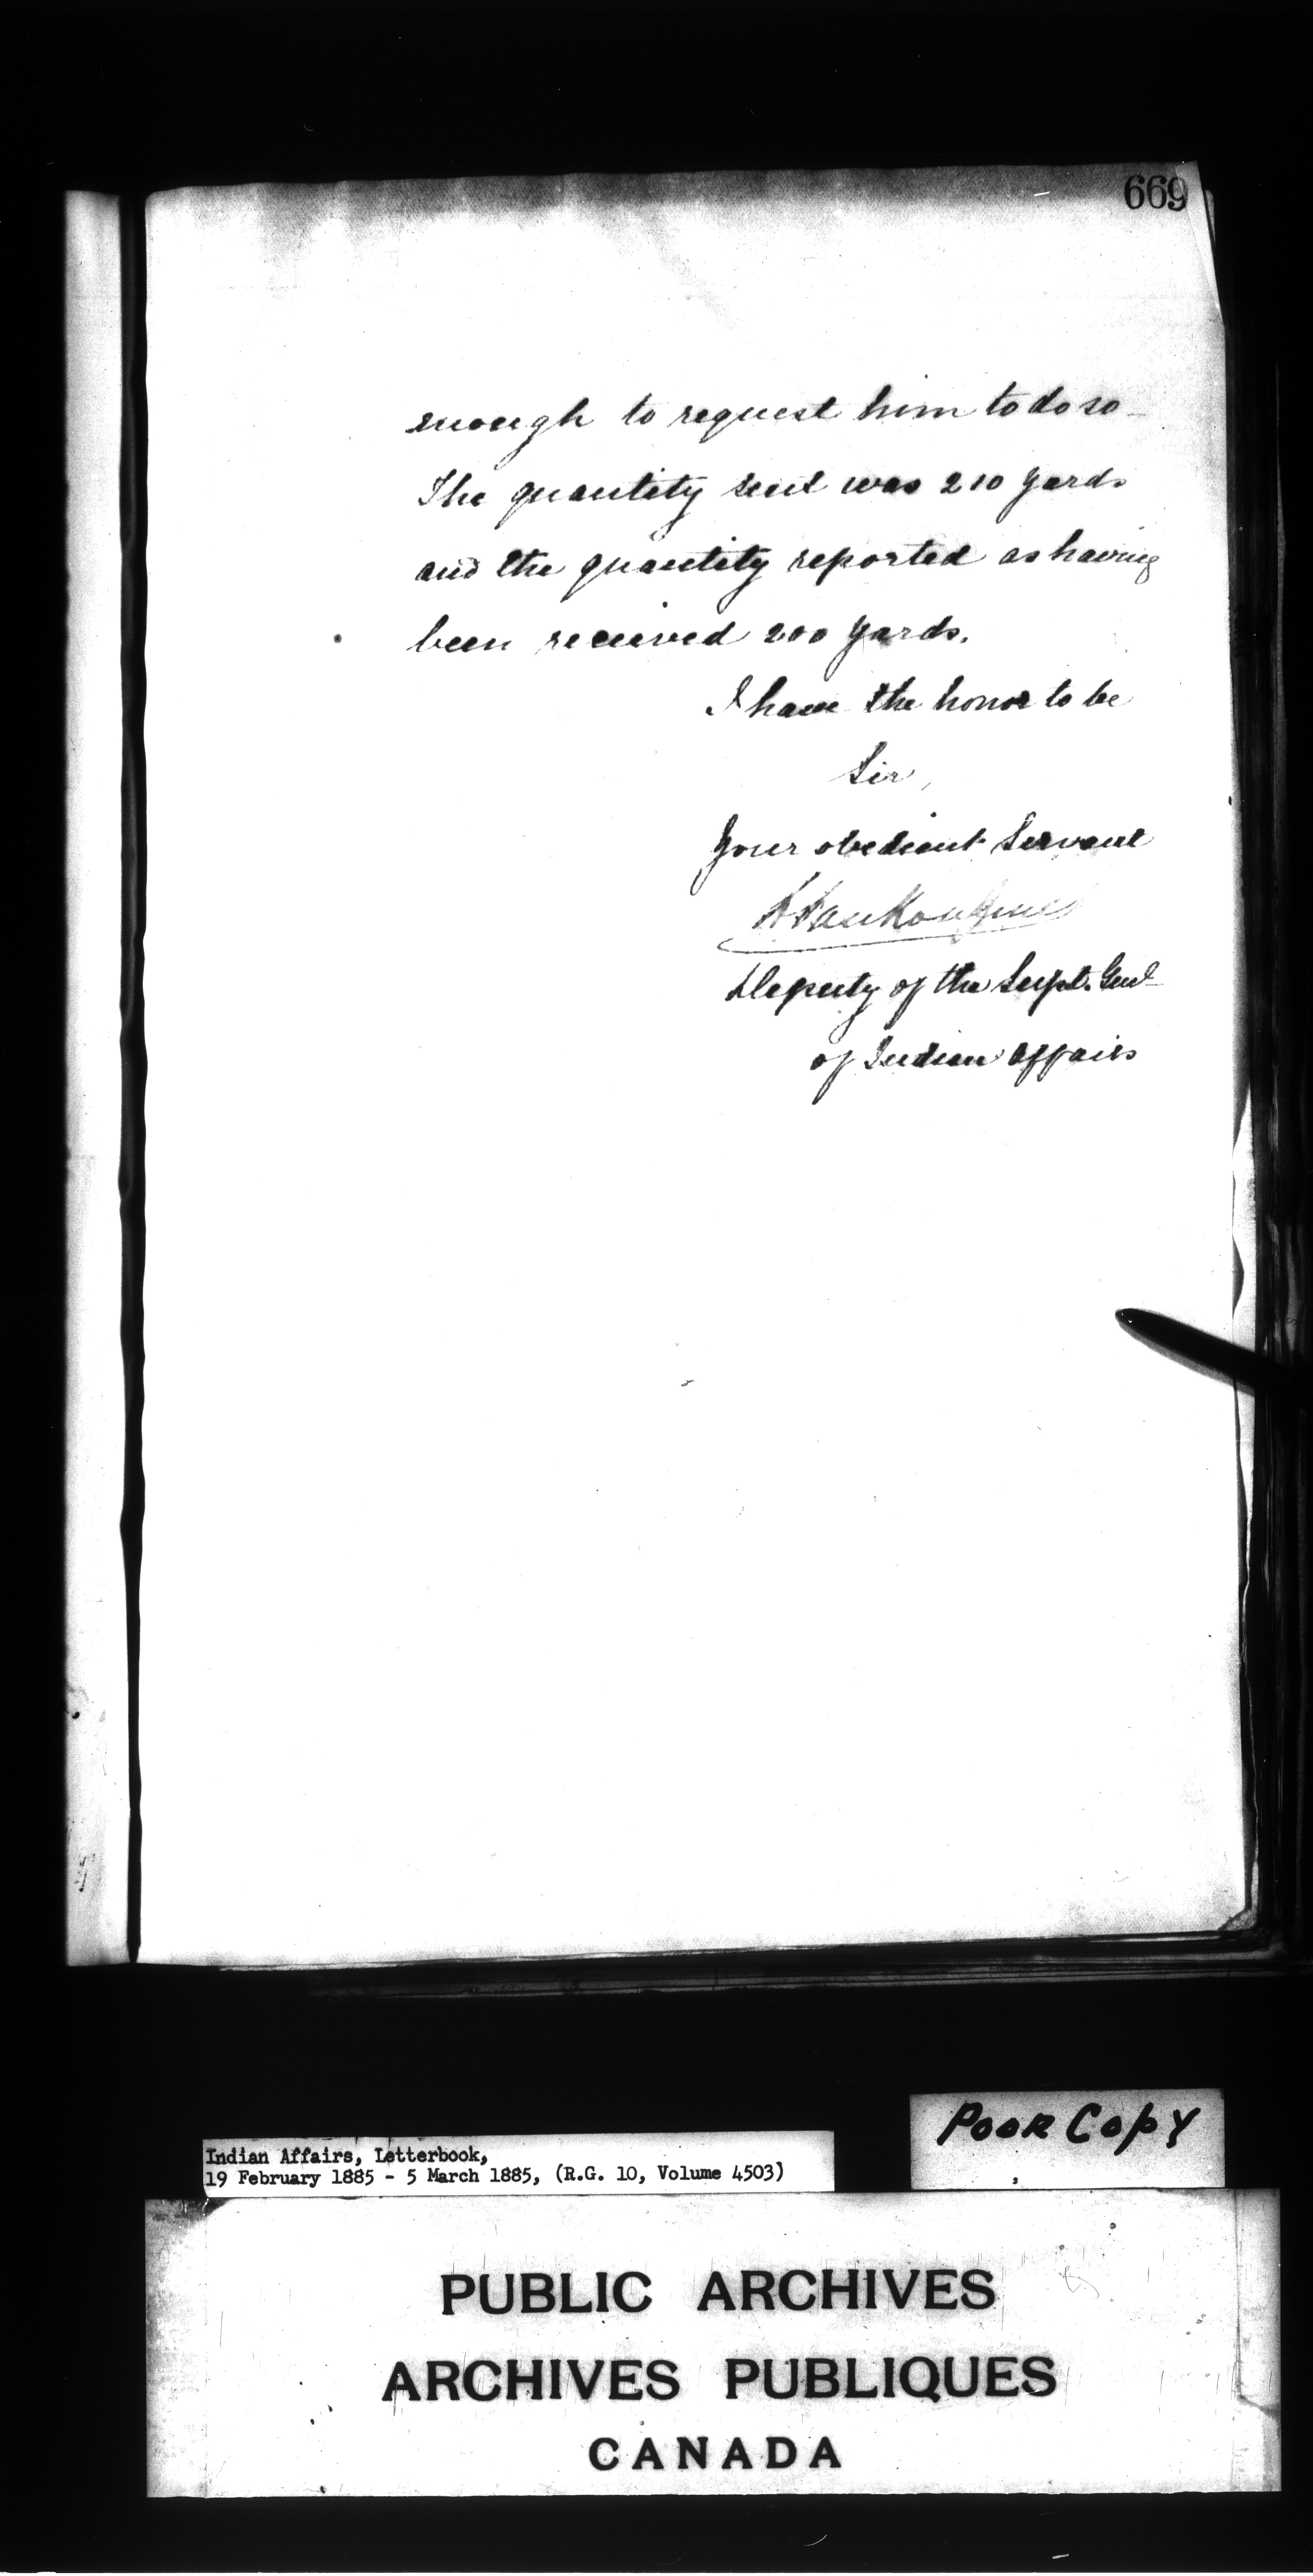 669
enough to request him to do so
The quantity sent was 210 yards
and the quantity reported as having
been received 200 yards.
I have the honor to be
Sir,
Your obedient Servant
L VanKoughnet
Deputy of the Supt. Genl
of Indian Affairs
Poor Copy
Indian Affairs, Letterbook,
19 February 1885 - 5 March 1885, (R.G. 10, Volume 4503)
PUBLIC ARCHIVES
ARCHIVES PUBLIQUES
CANADA